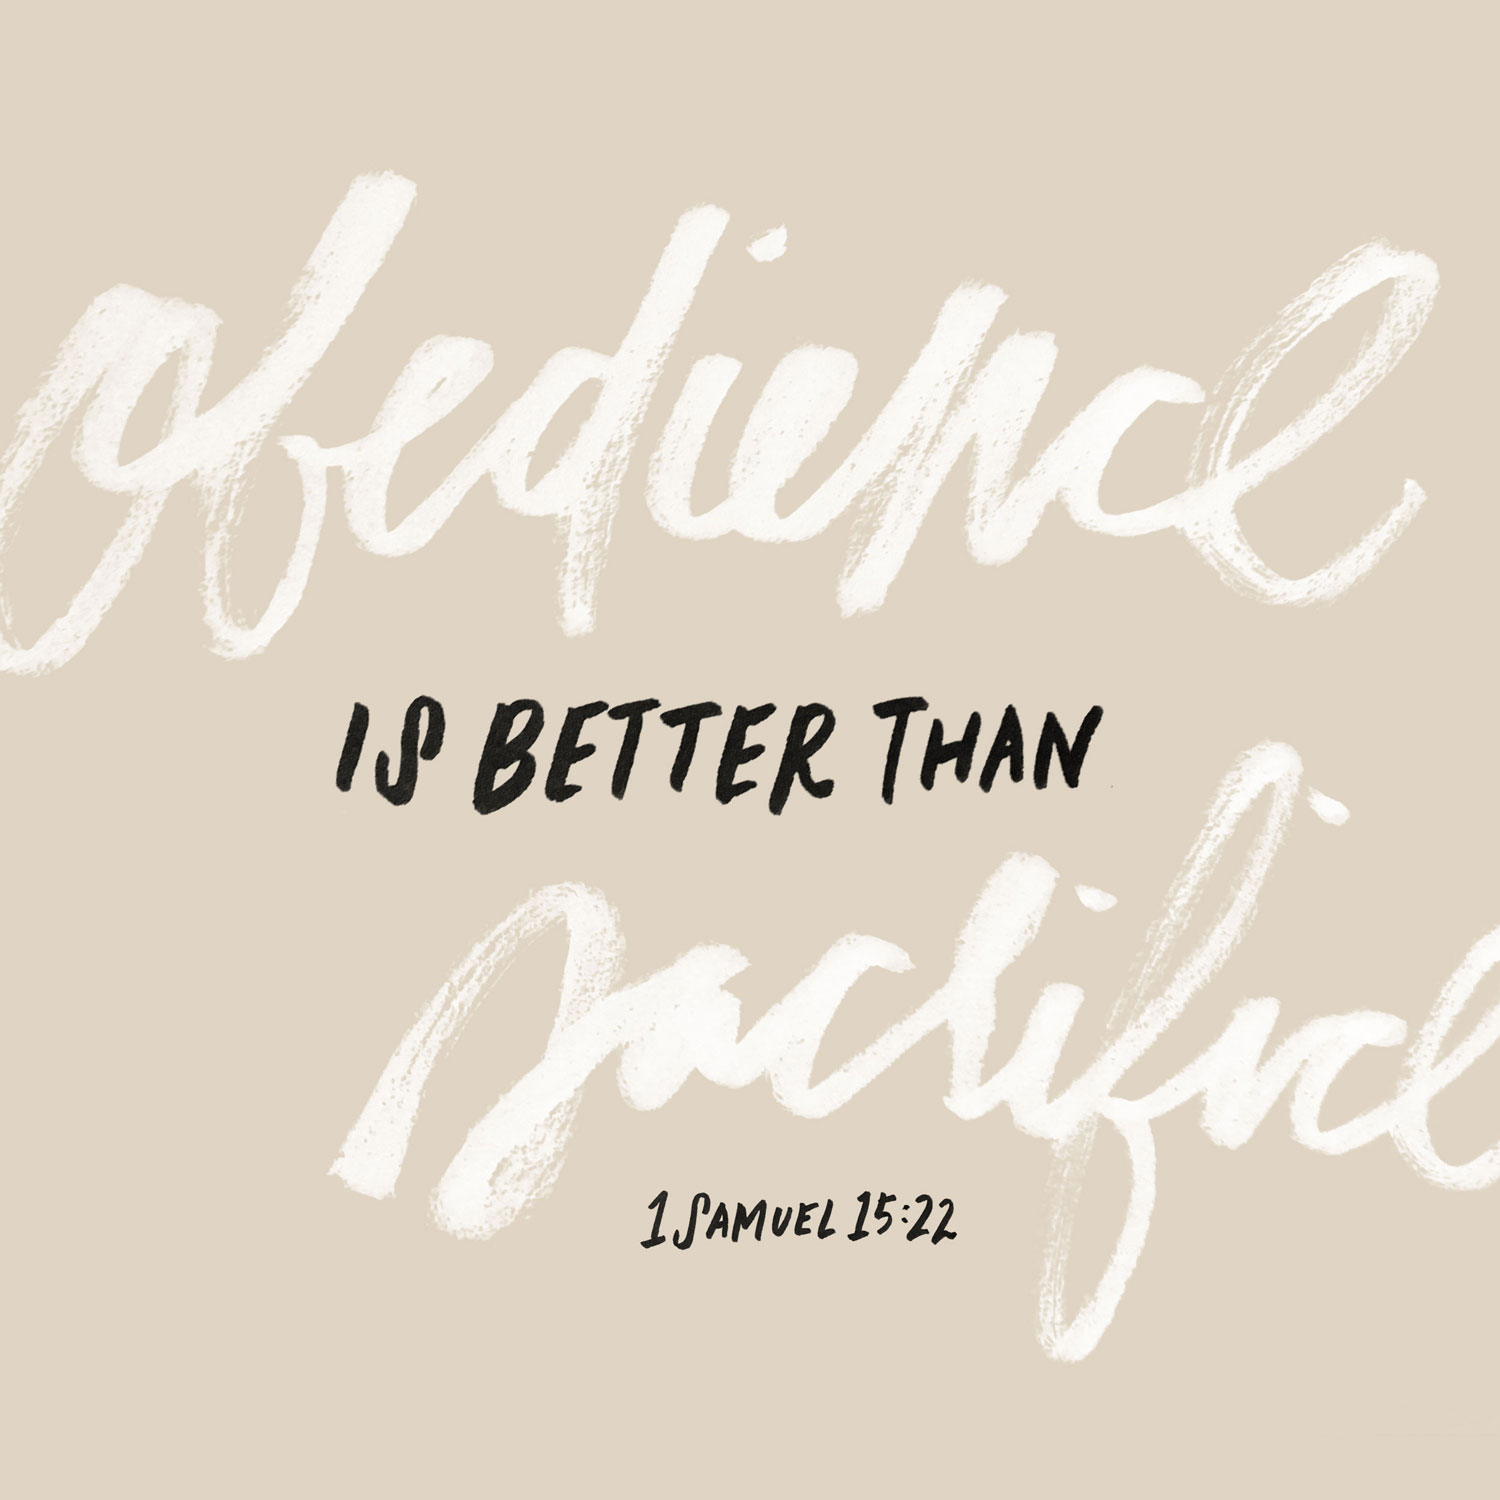 obedience
IS BETTER THAN
sacrifice
1 SAMUEL 15:22